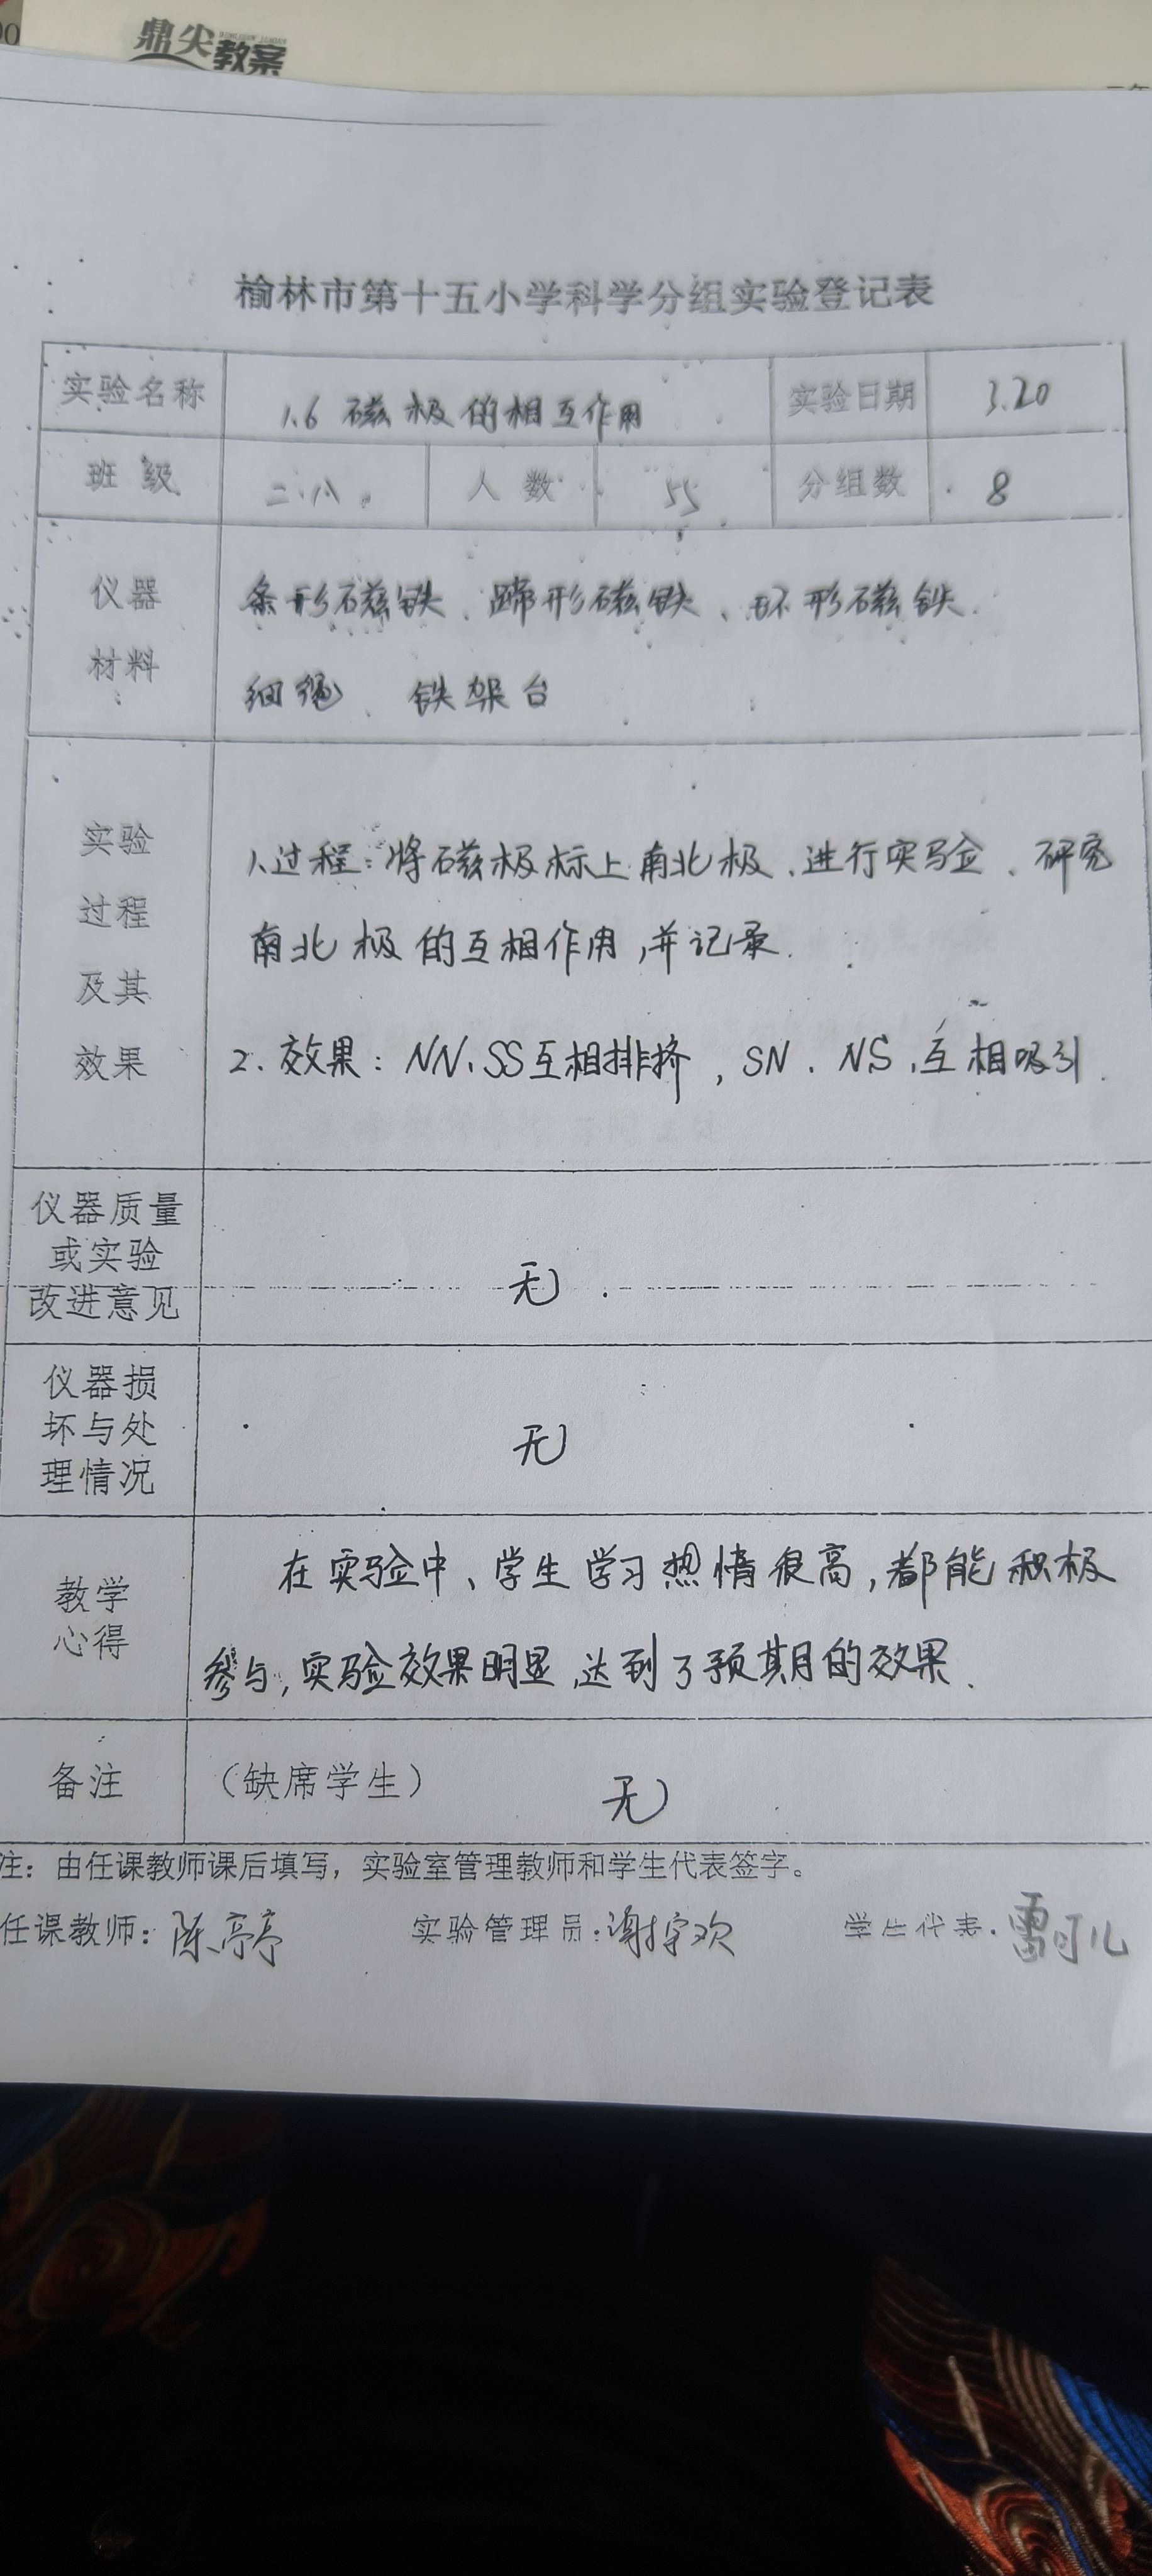 鼎尖教案
榆林市第十五小学科学分组实验登记表
实验名称 1.6 磁极的相互作用 实验日期 3.20
班 级 二.八 人 数 55 分组数 8
仪器 条形磁铁、蹄形磁铁、环形磁铁
材料 细绳、铁架台
实验
过程
及其
效果
1、过程:将磁极标上南北极、进行实验、研究
南北极的互相作用,并记录.
2. 效果:NN、SS互相排挤,SN、NS、互相吸引.
仪器质量
或实验
改进意见
无.
仪器损
坏与处
理情况
无
教学
心得
在实验中、学生学习热情很高,都能积极
参与,实验效果明显,达到了预期的效果.
备注 (缺席学生) 无
注:由任课教师课后填写,实验室管理教师和学生代表签字。
任课教师:陈亭亭 实验管理员:谢宇欢 学生代表:雷可儿